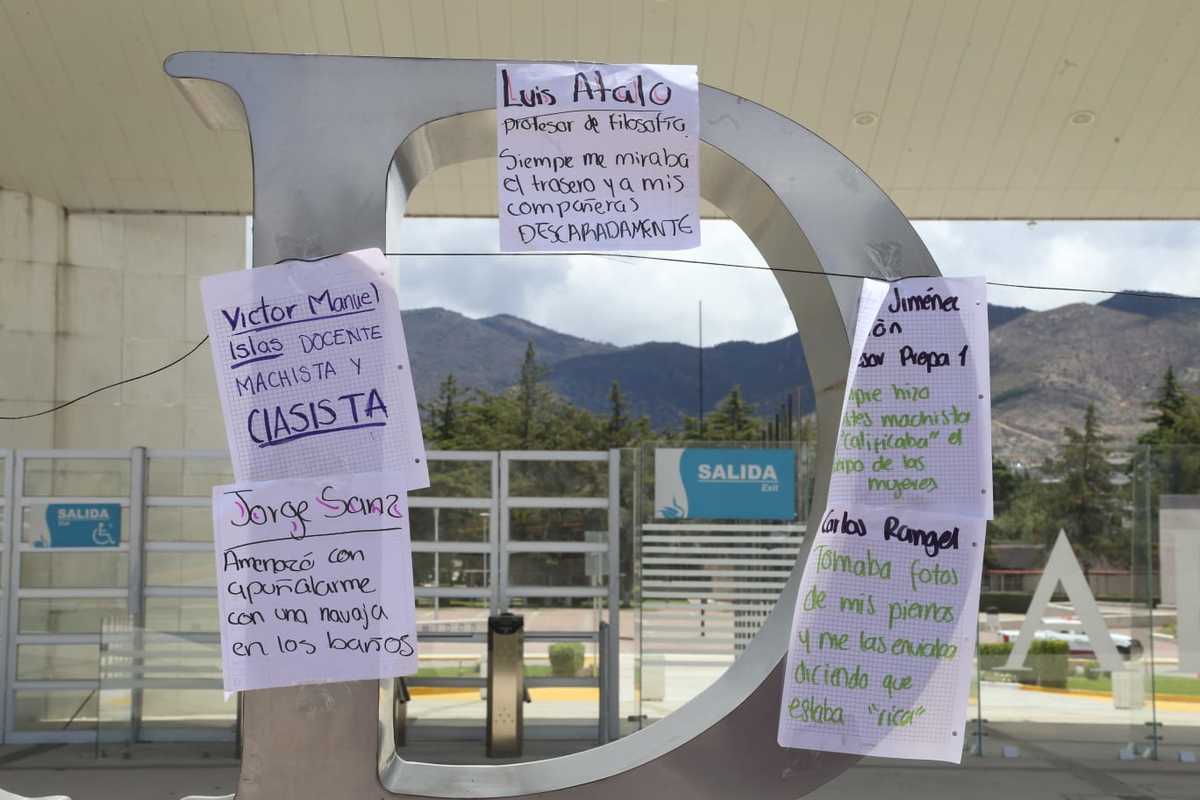 Luis Atalo
profesor de filosofía
Siempe me miraba
el trasero y a mis
compañeras
DESCARADAMENTE
Victor Manuel
Islas DOCENTE
MACHISTA Y
ClASISTA
Jorge Sainz
Amenazó con
apuñalarme
con una navaja
en los baños
Jiménez
ón
sor Prepa 1
pre hizo
stes machista
"calificaba" el
rpo de las
mujeres
Carlos Rangel
Tomaba fotos
de mis piernas
y me las enviaba
diciendo que
estaba "rica"
SALIDA
Exit
SALIDA
Exit
A